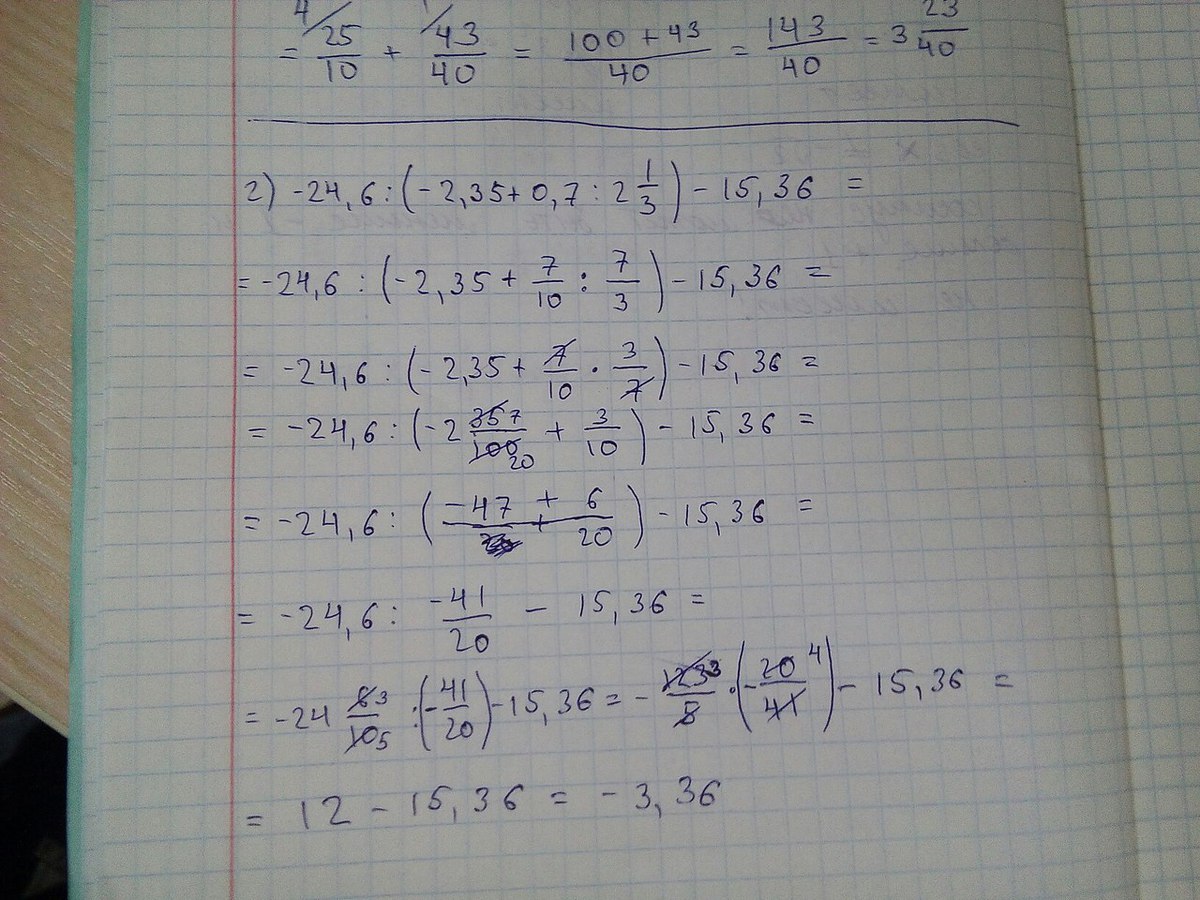 = 4/ 25/10 + 1/ 43/40 = (100 + 43)/40 = 143/40 = 3 23/40
г) -24,6 : (-2,35 + 0,7 : 2 1/3) - 15,36 =
= -24,6 : (-2,35 + 7/10 : 7/3) - 15,36 =
= -24,6 : (-2,35 + 7/10 · 3/7) - 15,36 =
= -24,6 : (-2 35 7/100 20 + 3/10) - 15,36 =
= -24,6 : ((-47 + 6)/20) - 15,36 =
= -24,6 : -41/20 - 15,36 =
= -24 6 3/10 5 : (-41/20) - 15,36 = - 123 3/5 · (-20 4/41) - 15,36 =
= 12 - 15,36 = -3,36